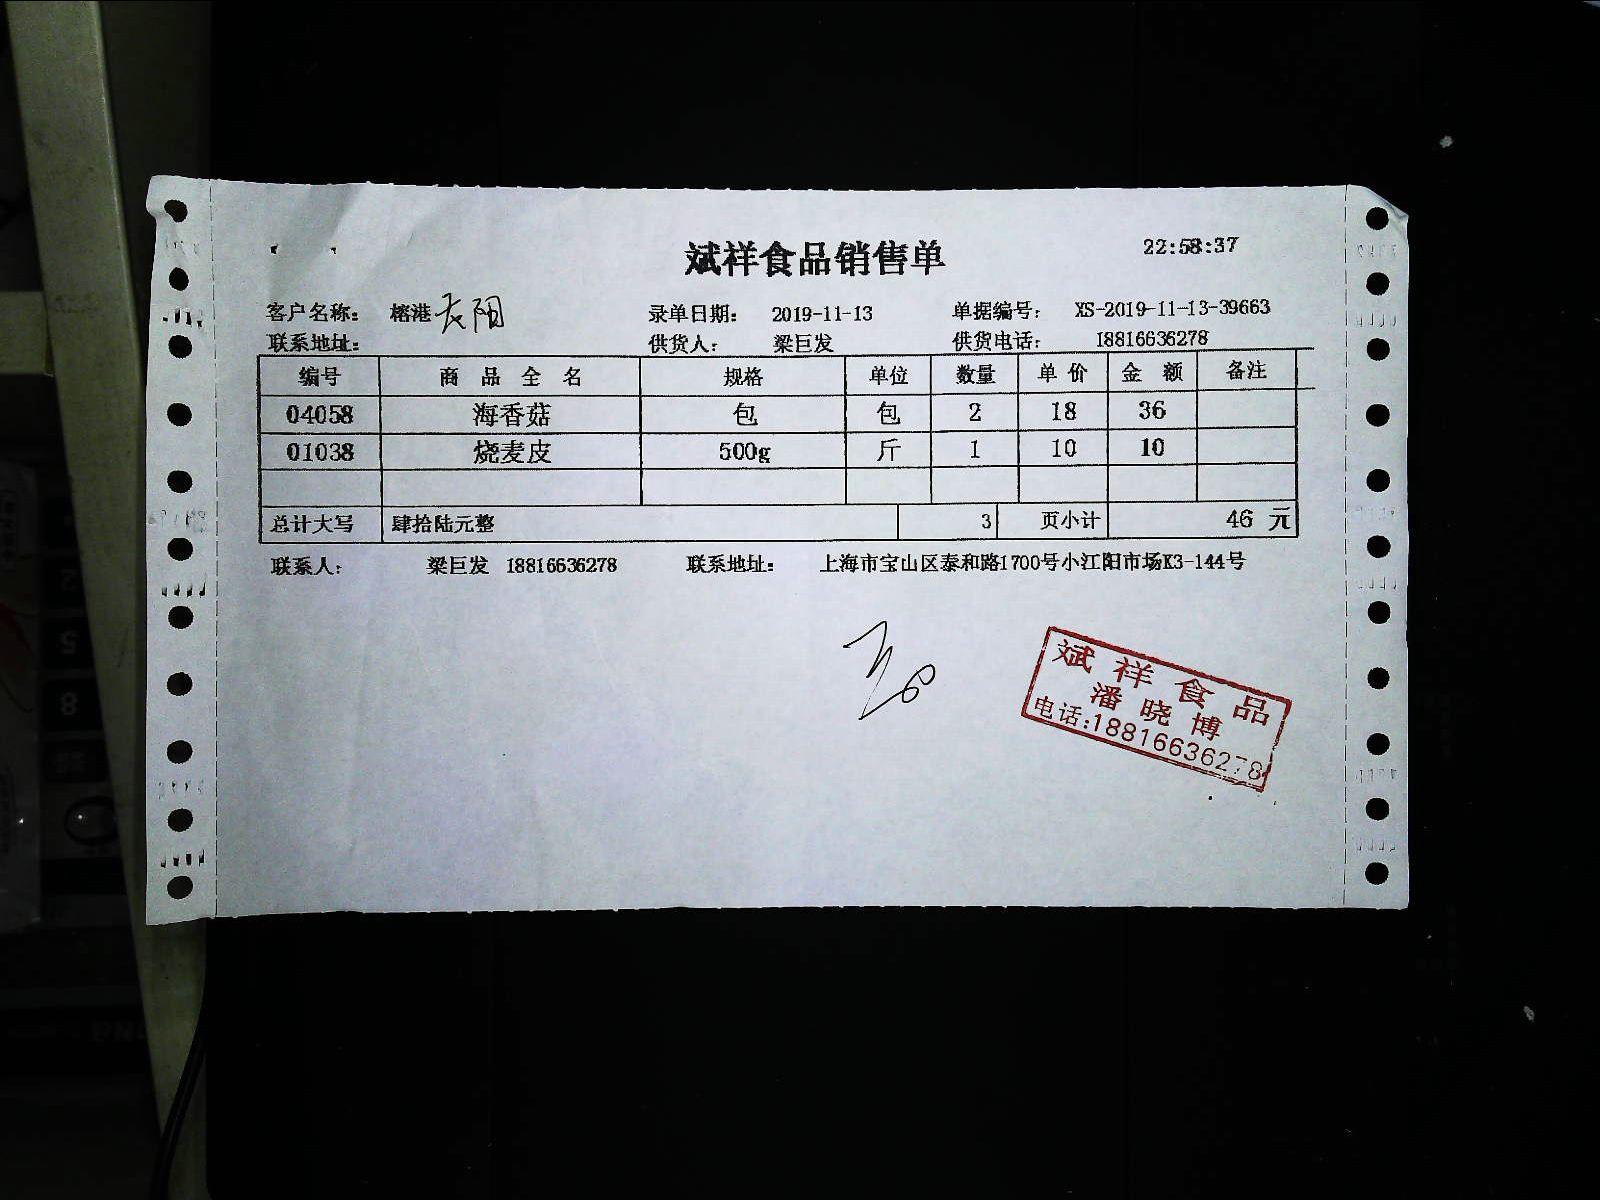 斌祥食品销售单 22:58:37
客户名称： 榕港 录单日期： 2019-11-13 单据编号： XS-2019-11-13-39663
联系地址： 供货人： 梁巨发 供货电话： 18816636278
编号 商 品 全 名 规格 单位 数量 单 价 金 额 备注
04058 海香菇 包 包 2 18 36
01038 烧麦皮 500g 斤 1 10 10
总计大写 肆拾陆元整 3 页小计 46 元
联系人： 梁巨发 18816636278 联系地址： 上海市宝山区泰和路1700号小江阳市场K3-144号
斌祥食品
潘晓博
电话:18816636278